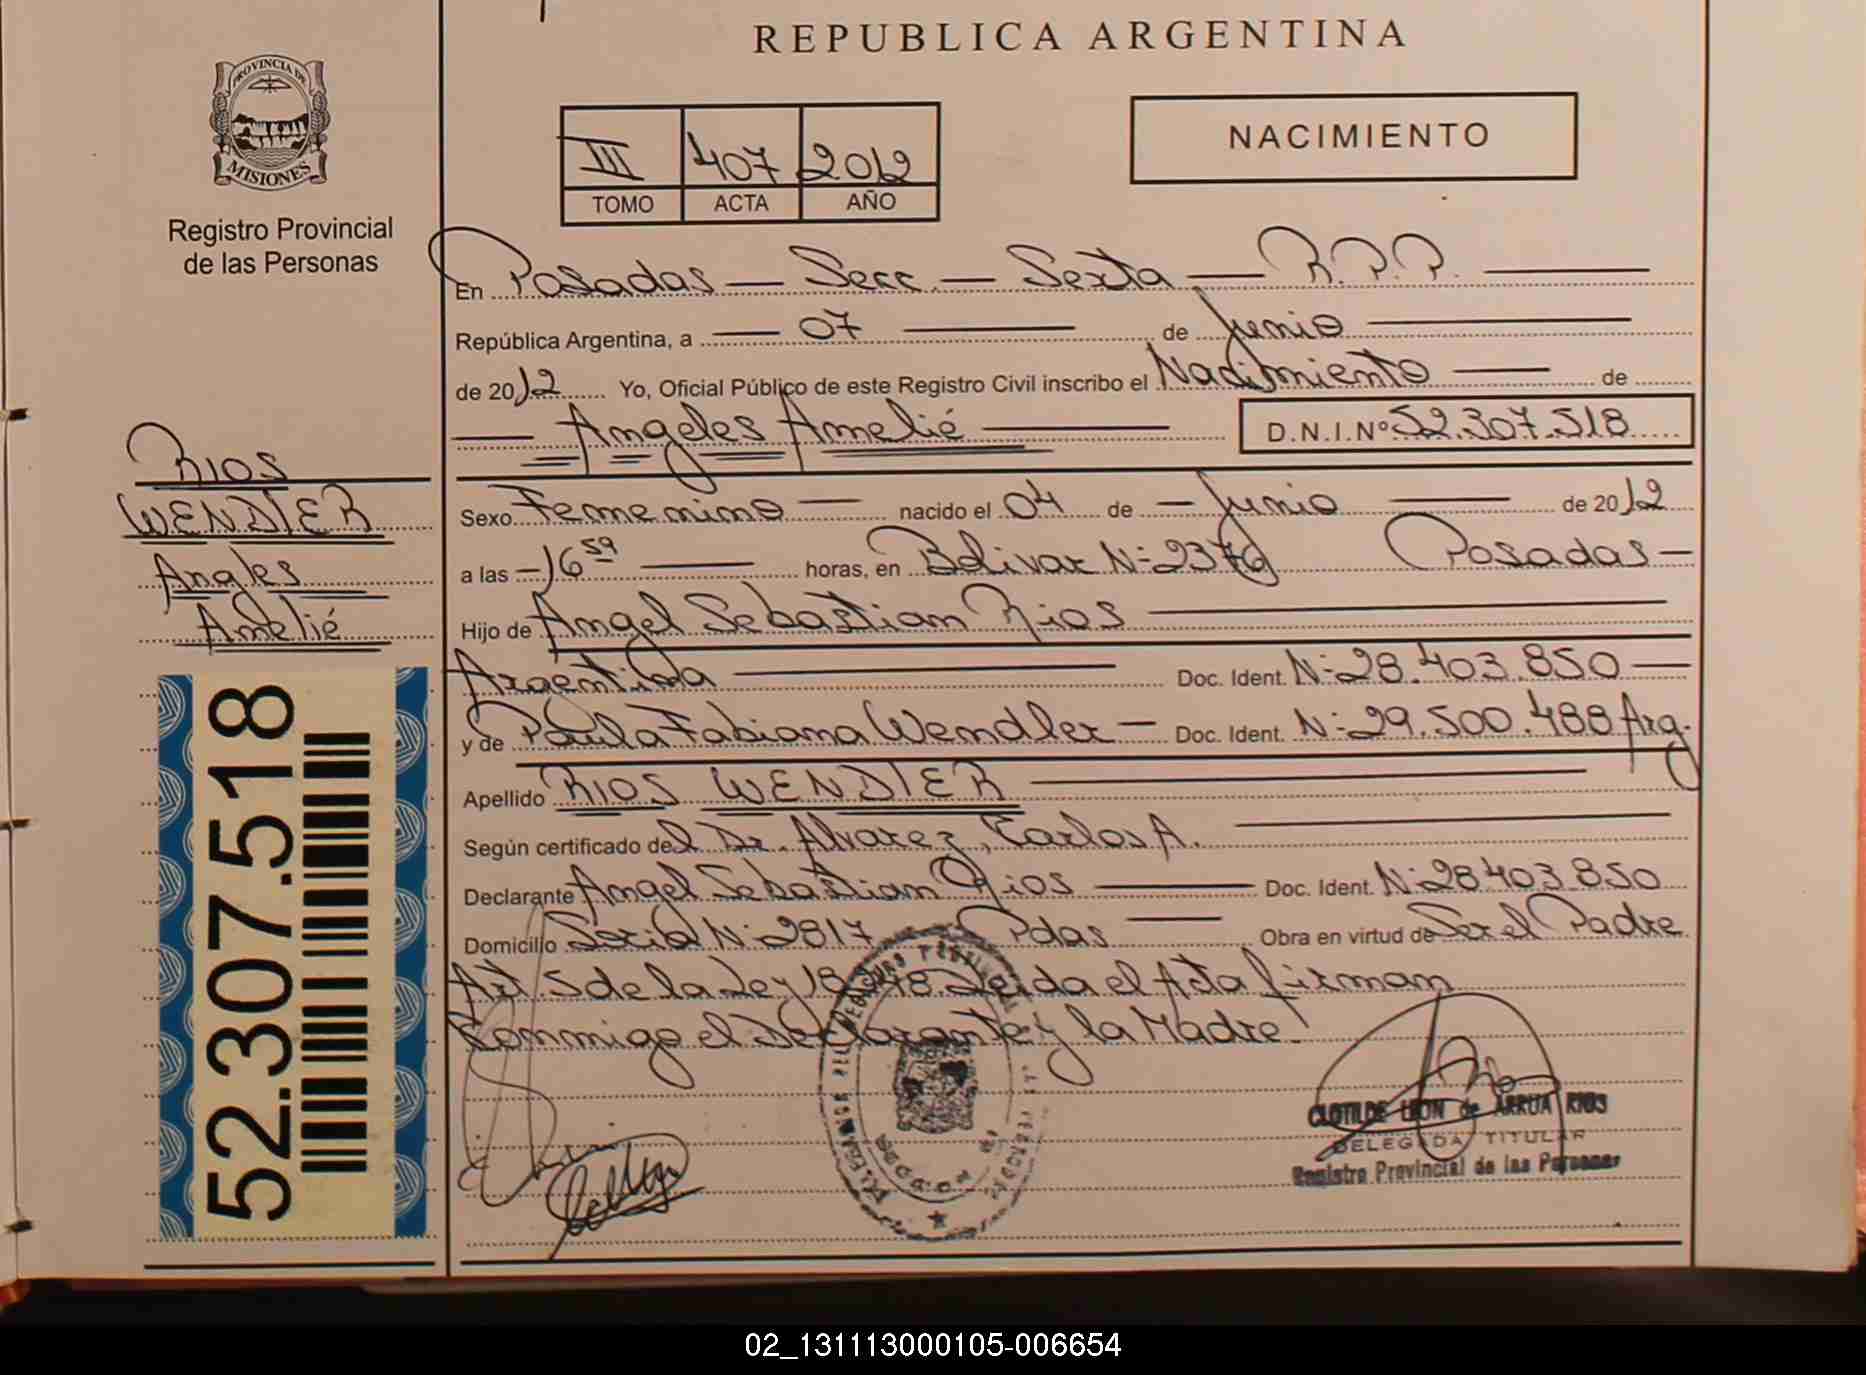 REPUBLICA ARGENTINA
PROVINCIA DE
MISIONES
Registro Provincial
de las Personas
III 407 2012
TOMO ACTA AÑO
NACIMIENTO
RIOS
WENDLER
Angles
Amelié
52.307.518
En Posadas — Secc. — Sexta — R.P.P.
República Argentina, a — 07 — de Junio
de 2012 Yo, Oficial Público de este Registro Civil inscribo el Nacimiento — de
— Angeles Amelié — D.N.I.Nº 52.307.518
Sexo Femenino — nacido el 04 de — Junio — de 2012
a las — 16 59 — horas, en Bolivar Nº 2376 Posadas —
Hijo de Angel Sebastian Rios —
Argentina — Doc. Ident. Nº 28.403.850 —
y de Paula Fabiana Wendler — Doc. Ident. Nº 29.500.488 Arg.
Apellido RIOS WENDLER —
Según certificado del Dr. Alvarez, Carlos A. —
Declarante Angel Sebastian Rios — Doc. Ident. Nº 28403850
Domicilio Nº 2817 Pdas — Obra en virtud de Ser el Padre
Art. 5 de la Ley 18.248 Leida el Acta firman
Conmigo el Declarante y la Madre.
CLOTILDE LEON de ARRUA RIOS
DELEGADA TITULAR
Registro Provincial de las Personas
02_131113000105-006654